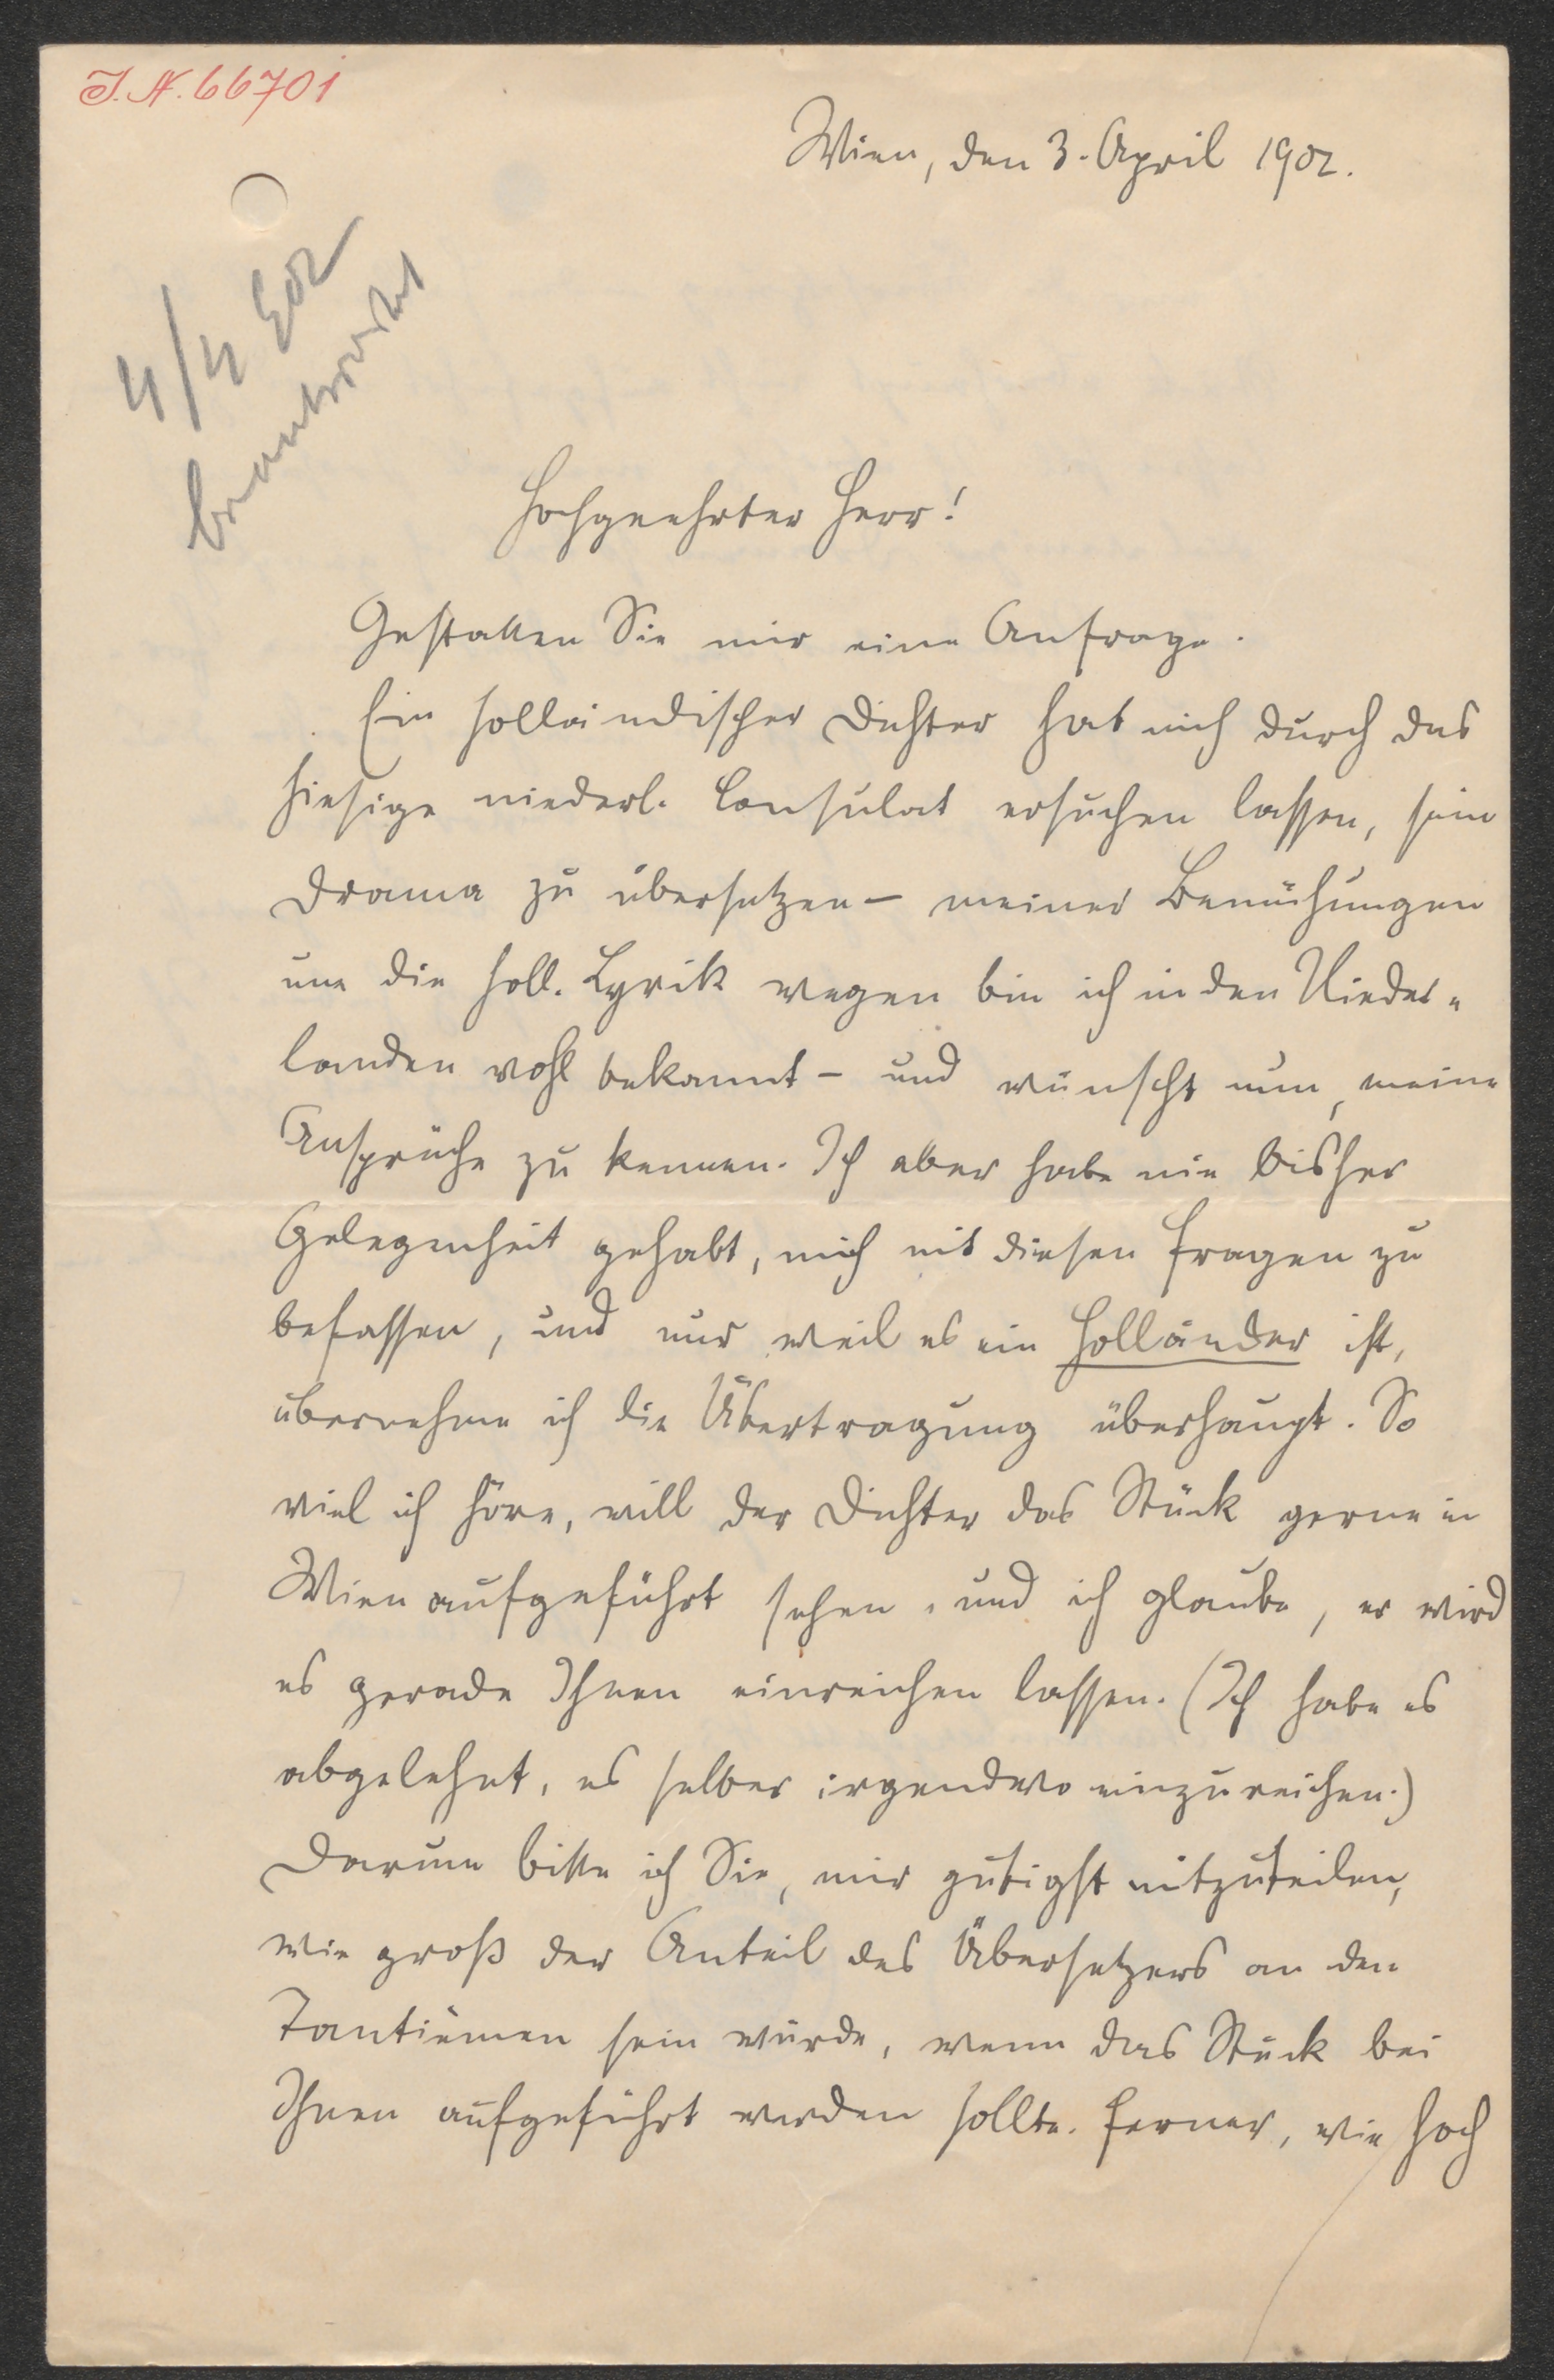 I. N. 66701
Wien, den 3. April 1902.
4/4 902
beantwortet
Hochgeehrter Herr!
Gestatten Sie mir eine Anfrage.
Ein holländischer Dichter hat mich durch das
hiesige niederl. Consulat ersuchen lassen, sein
Drama zu übersetzen – meiner Bemühungen
um die holl. Lyrik wegen bin ich in den Nieder-
landen wohl bekannt – und wünscht nun, meine
Ansprüche zu kennen. Ich aber habe nie bisher
Gelegenheit gehabt, mich mit diesen Fragen zu
befassen, und nur weil es ein Holländer ist,
übernehme ich die Übertragung überhaupt. So
viel ich höre, will der Dichter das Stück gerne in
Wien aufgeführt sehen, und ich glaube, er wird
es gerade Ihnen einreichen lassen. (Ich habe es
abgelehnt, es selber irgendwo einzureichen.)
Darum bitte ich Sie, mir gütigst mitzuteilen,
wie groß der Anteil des Übersetzers an den
Tantièmen sein würde, wenn das Stück bei
Ihnen aufgeführt werden sollte. Ferner, wie hoch